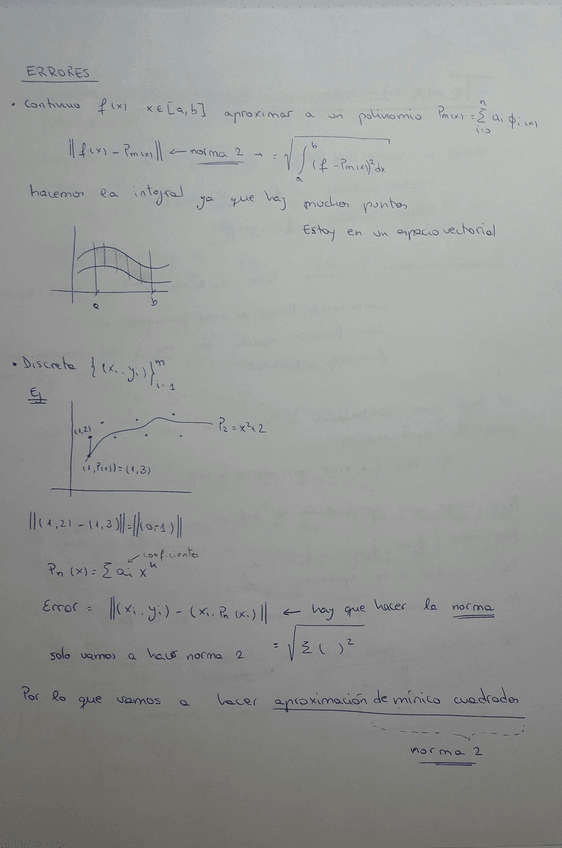 ERRORES
• Continuo f(x) x∈[a,b] aproximar a un polinomio Pm(x) = Σ_{i=0}^{n} ai ϕi(x)
||f(x) - Pm(x)|| ← norma 2 → = √∫_a^b (f - Pm(x))² dx
hacemos la integral ya que hay muchos puntos
Estoy en un espacio vectorial
a b
• Discreta {(xi, yi)}_{i=1}^{m}
Ej
(1,2)
P2 = x²+2
(1, P(1)) = (1,3)
||(1,2) - (1,3)|| = ||(0,-1)||
coeficientes
Pn(x) = Σ ai x^k
Error = ||(xi, yi) - (xi, Pn(xi)|| ← hay que hacer la norma
solo vamos a hacer norma 2 = √Σ( )²
Por lo que vamos a hacer aproximación de mínico cuadrados
norma 2